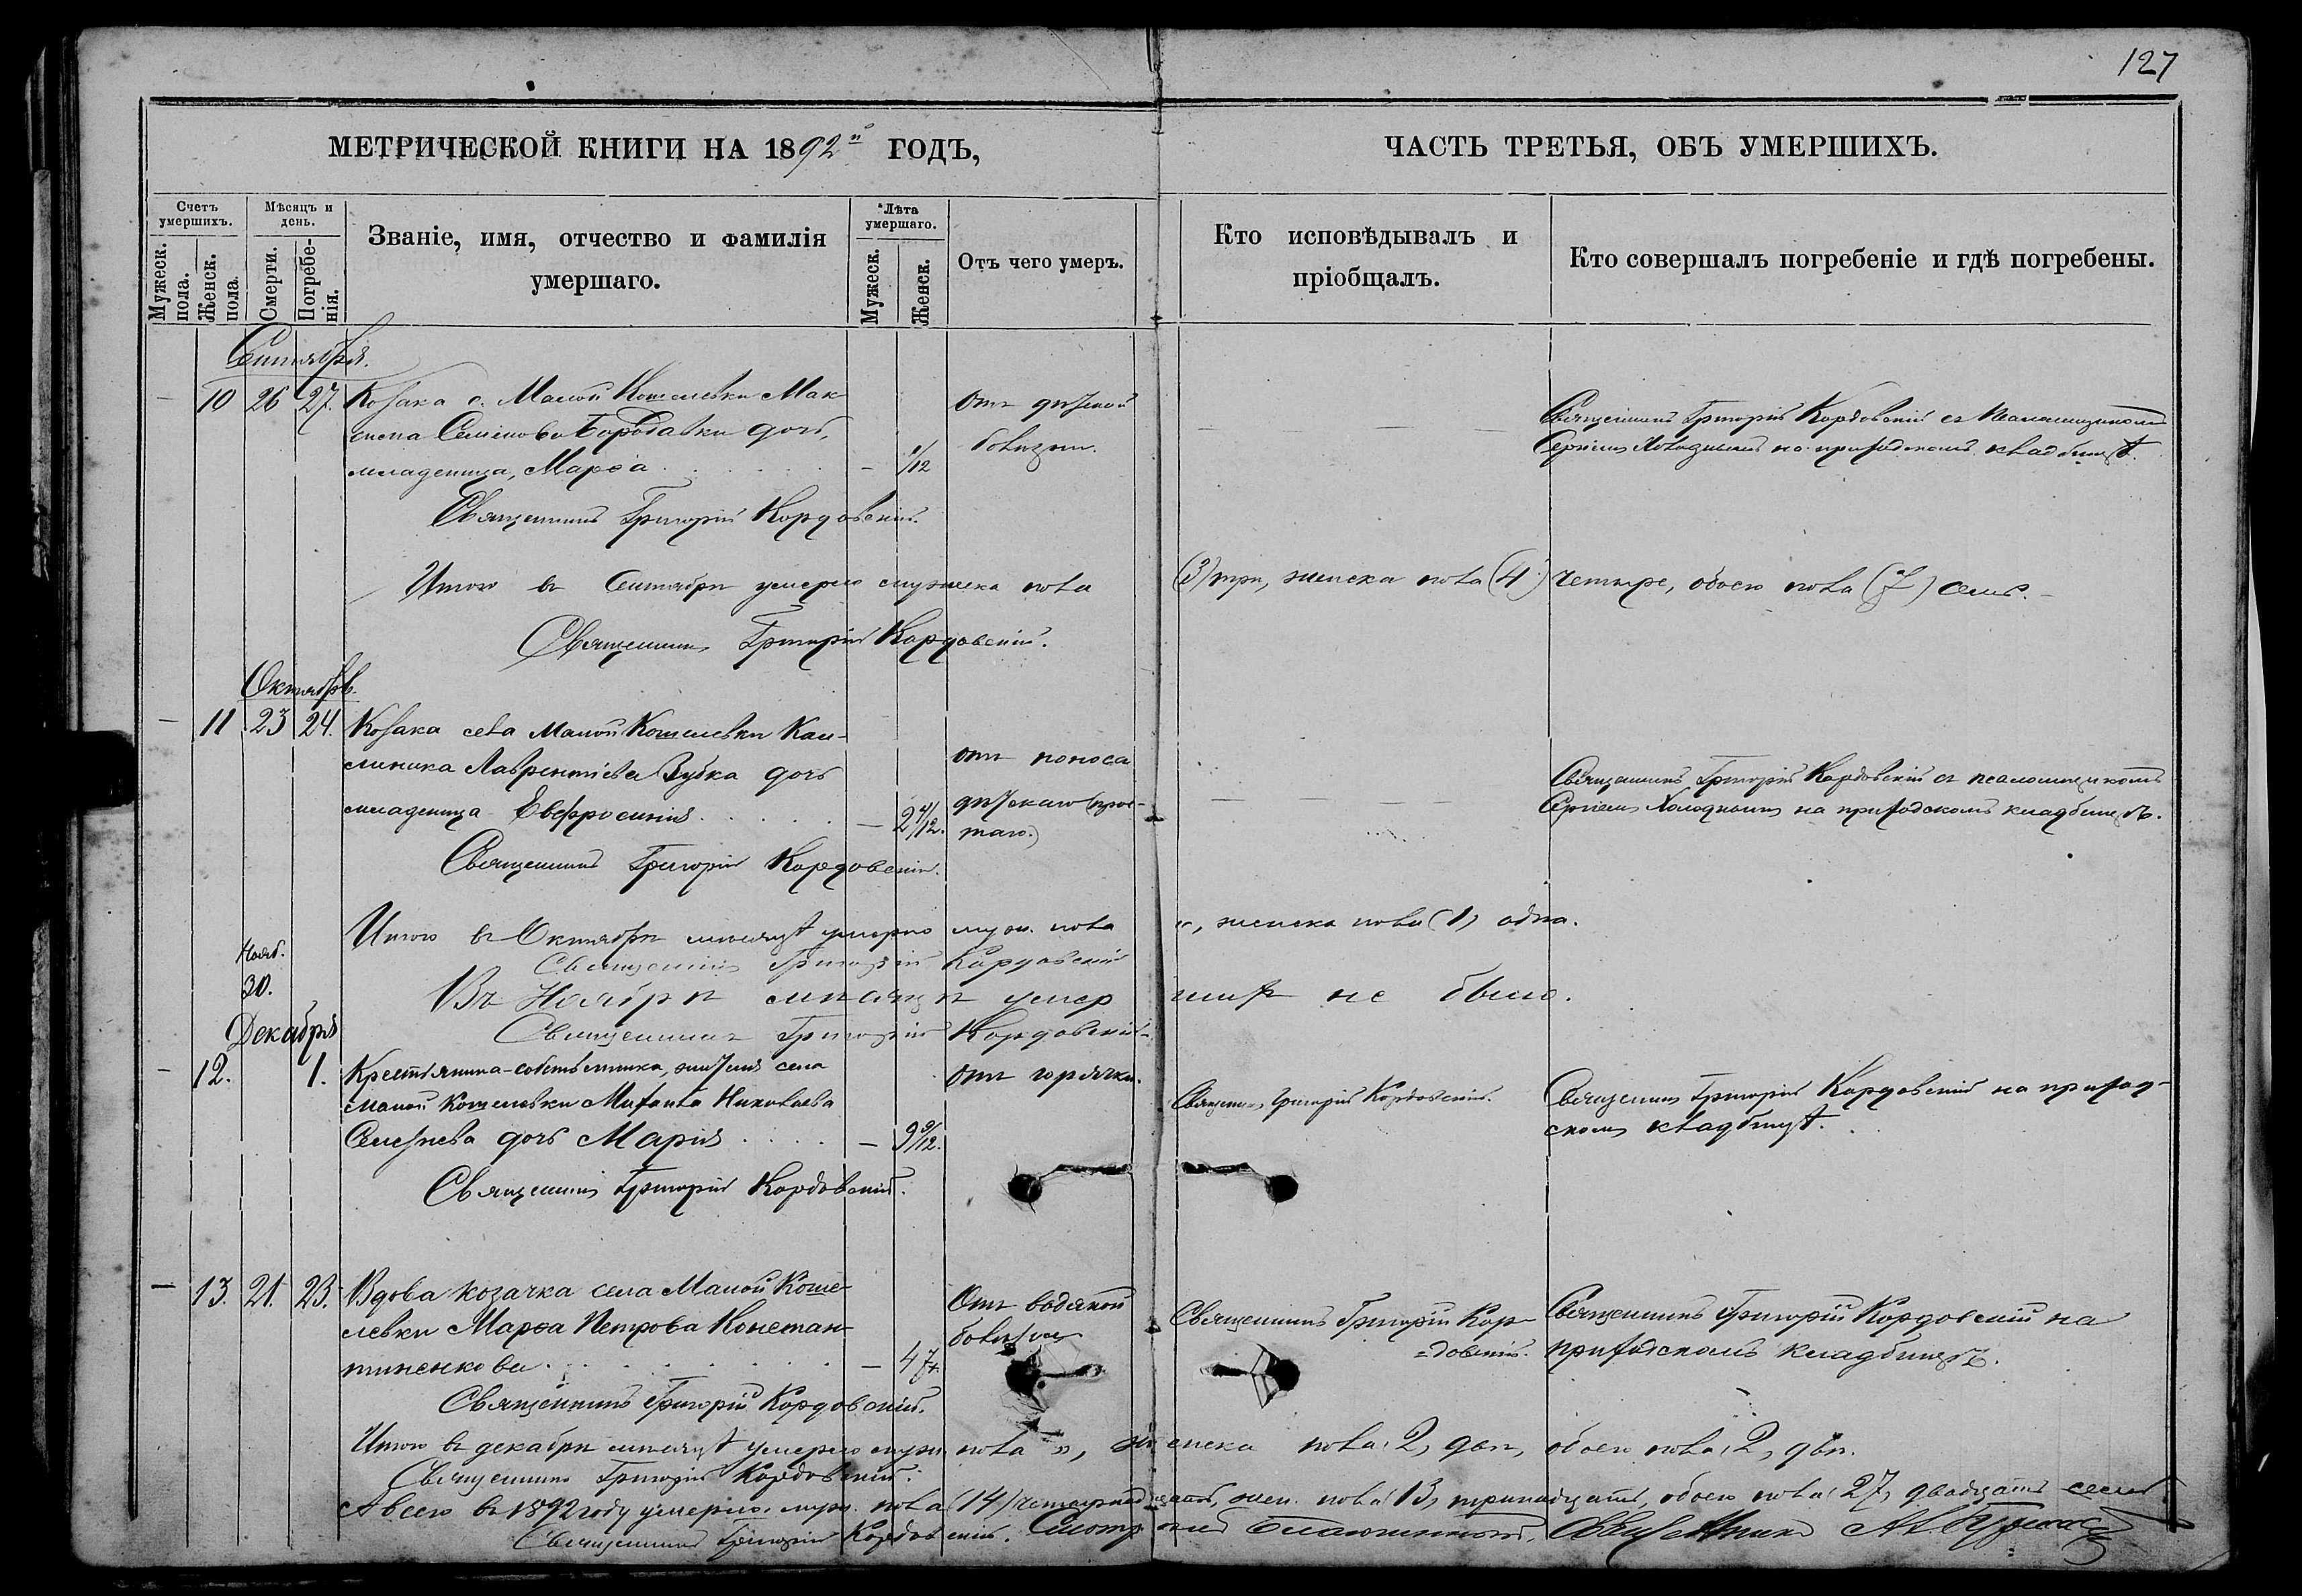 127
МЕТРИЧЕСКОЙ КНИГИ НА 1892й ГОДЪ,
ЧАСТЬ ТРЕТЬЯ, ОБЪ УМЕРШИХЪ.
Счетъ умершихъ.
Мужеск. пола.
Женск. пола.
Мѣсяцъ и день.
Смерти.
Погребенія.
Званіе, имя, отчество и фамилія
умершаго.
Лѣта умершаго.
Мужеск.
Женск.
Отъ чего умеръ.
Кто исповѣдывалъ и
пріобщалъ.
Кто совершалъ погребеніе и гдѣ погребены.
Сентября.
— 10 26 27. Козака с. Малой Кошелевки Мак-
сима Семенова Бородавки дочь,
младеница, Марѳа — 1/12
Отъ дѣтской
болѣзни.
Священникъ Григорій Кордовскій съ Псаломщикомъ
Сергіемъ Холоднымъ на приходскомъ кладбищѣ.
Священникъ Григорій Кордовскій.
Итого въ Сентябрѣ умерло мужеска пола (3) три, женска пола (4) четыре, обоего пола (7) семь.
Священникъ Григорій Кордовскій.
Октябрь.
— 11 23 24. Козака села Малой Кошелевки Кал-
линика Лаврентіева Зубка дочь
младеница Евфросинія — 2 4/12.
отъ поноса
дѣтскаго (прос-
таго.)
Священникъ Григорій Кордовскій съ псаломщикомъ
Сергіемъ Холоднымъ на приходскомъ кладбищѣ.
Священникъ Григорій Кордовскій.
Итого въ Октябрѣ мѣсяцѣ умерло муж. пола „, женска пола (1) одна.
Священникъ Григорій Кордовскій
Нояб.
30.
Въ Ноябрѣ мѣсяцѣ умершихъ не было.
Священникъ Григорій Кордовскій
Декабря
— 12. 1. Крестьянина-собственника, жителя села
Малой Кошелевки Михаила Николаева
Селезнева дочь Марія — 9 9/12.
отъ горячки.
Священникъ Григорій Кордовскій.
Священникъ Григорій Кордовскій на приход-
скомъ кладбищѣ.
Священникъ Григорій Кордовскій.
— 13. 21. 23. Вдова козачка села Малой Коше-
левки Марѳа Петрова Констан-
тиненкова — 47.
Отъ водяной
болѣзни
Священникъ Григорій Кор-
=довскій.
Священникъ Григорій Кордовскій на
приходскомъ кладбищѣ.
Священникъ Григорій Кордовскій.
Итого въ декабрѣ мѣсяцѣ умерло муж. пола „, женска пола 2, двѣ, обоего пола 2, двѣ.
Священникъ Григорій Кордовскій.
А всего въ 1892 году умерло муж. пола (14) четырнадцать, жен. пола 13, тринадцать, обоего пола 27, двадцать семь
Священникъ Григорій Кордовскій. Смотрѣлъ Благочинный, Священникъ